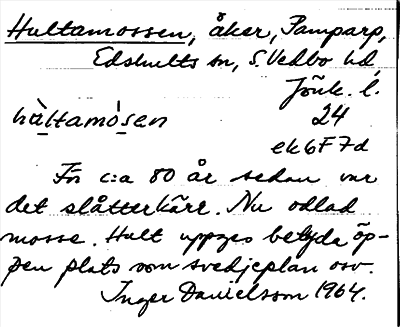 Hultamossen, åker, Pamparp,
Edshults sn, S. Vedbo hd,
Jönk. l.
hàltamò̱sen 24
ek 6F7d
För c:a 80 år sedan var
det slåtterkärr. Nu odlad
mosse. Hult uppges betyda öp-
pen plats som svedjeplan osv.
Inger Danielsson 1964.